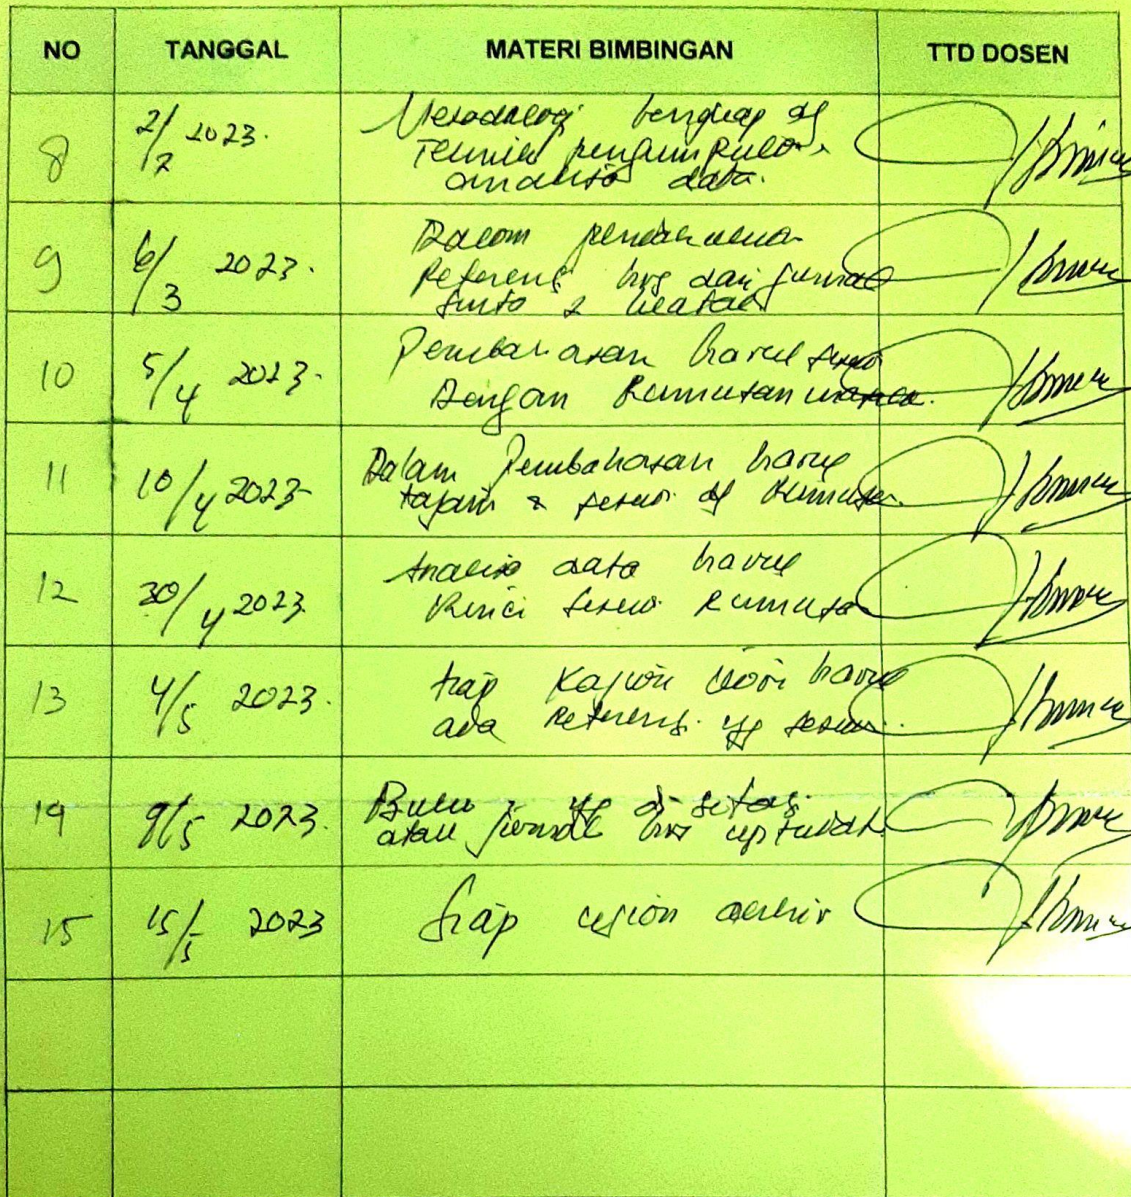 NO TANGGAL MATERI BIMBINGAN TTD DOSEN
8 2/2 2023. Metodologi lengkap dg
Teknik pengumpulan,
analisis data.
9 6/3 2023. Dalam pendahuluan
Referensi hrs dari jurnal
Sinta 2
10 5/4 2023. Pembahasan harus sesuai
Dengan Rumusan masalah.
11 10/4 2023 Dalam Pembahasan harus
tajam & sesuai dg Rumusan
12 30/4 2023 Analisis data harus
Rinci sesuai Rumusan
13 4/5 2023. tiap Kajian teori harus
ada Referensi yg sesuai.
14 9/5 2023. Buku yg di sitasi
atau jurnal hrs
15 15/5 2023 Siap ujian akhir